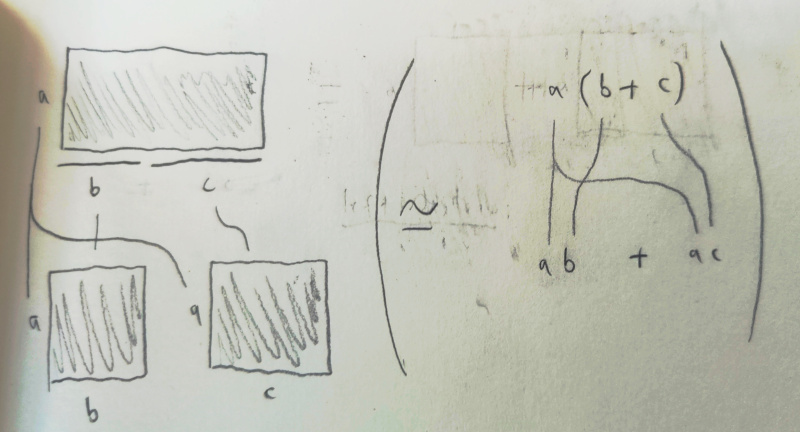 a
b c
a a
b c
≃
a (b + c)
ab + ac